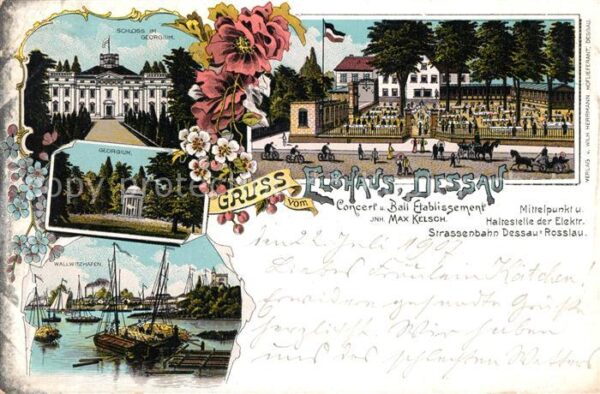 SCHLOSS IM
GEORGIUM.
GEORGIUM.
WALLWITZHAFEN.
GRUSS vom ELBHAUS, DESSAU
Concert u. Ball Etablissement
INH. MAX KELSCH.
Mittelpunkt u.
Haltestelle der Elektr.
Strassenbahn Dessau-Rosslau.
VERLAG v. WILH. HERRMANN, HOFLIEFERANT, DESSAU.
Juli 1902
Liebes Fräulein Kätchen,
Erwidern gesandte Grüße
herzlichst. Wir haben
uns des schlechten Wetters